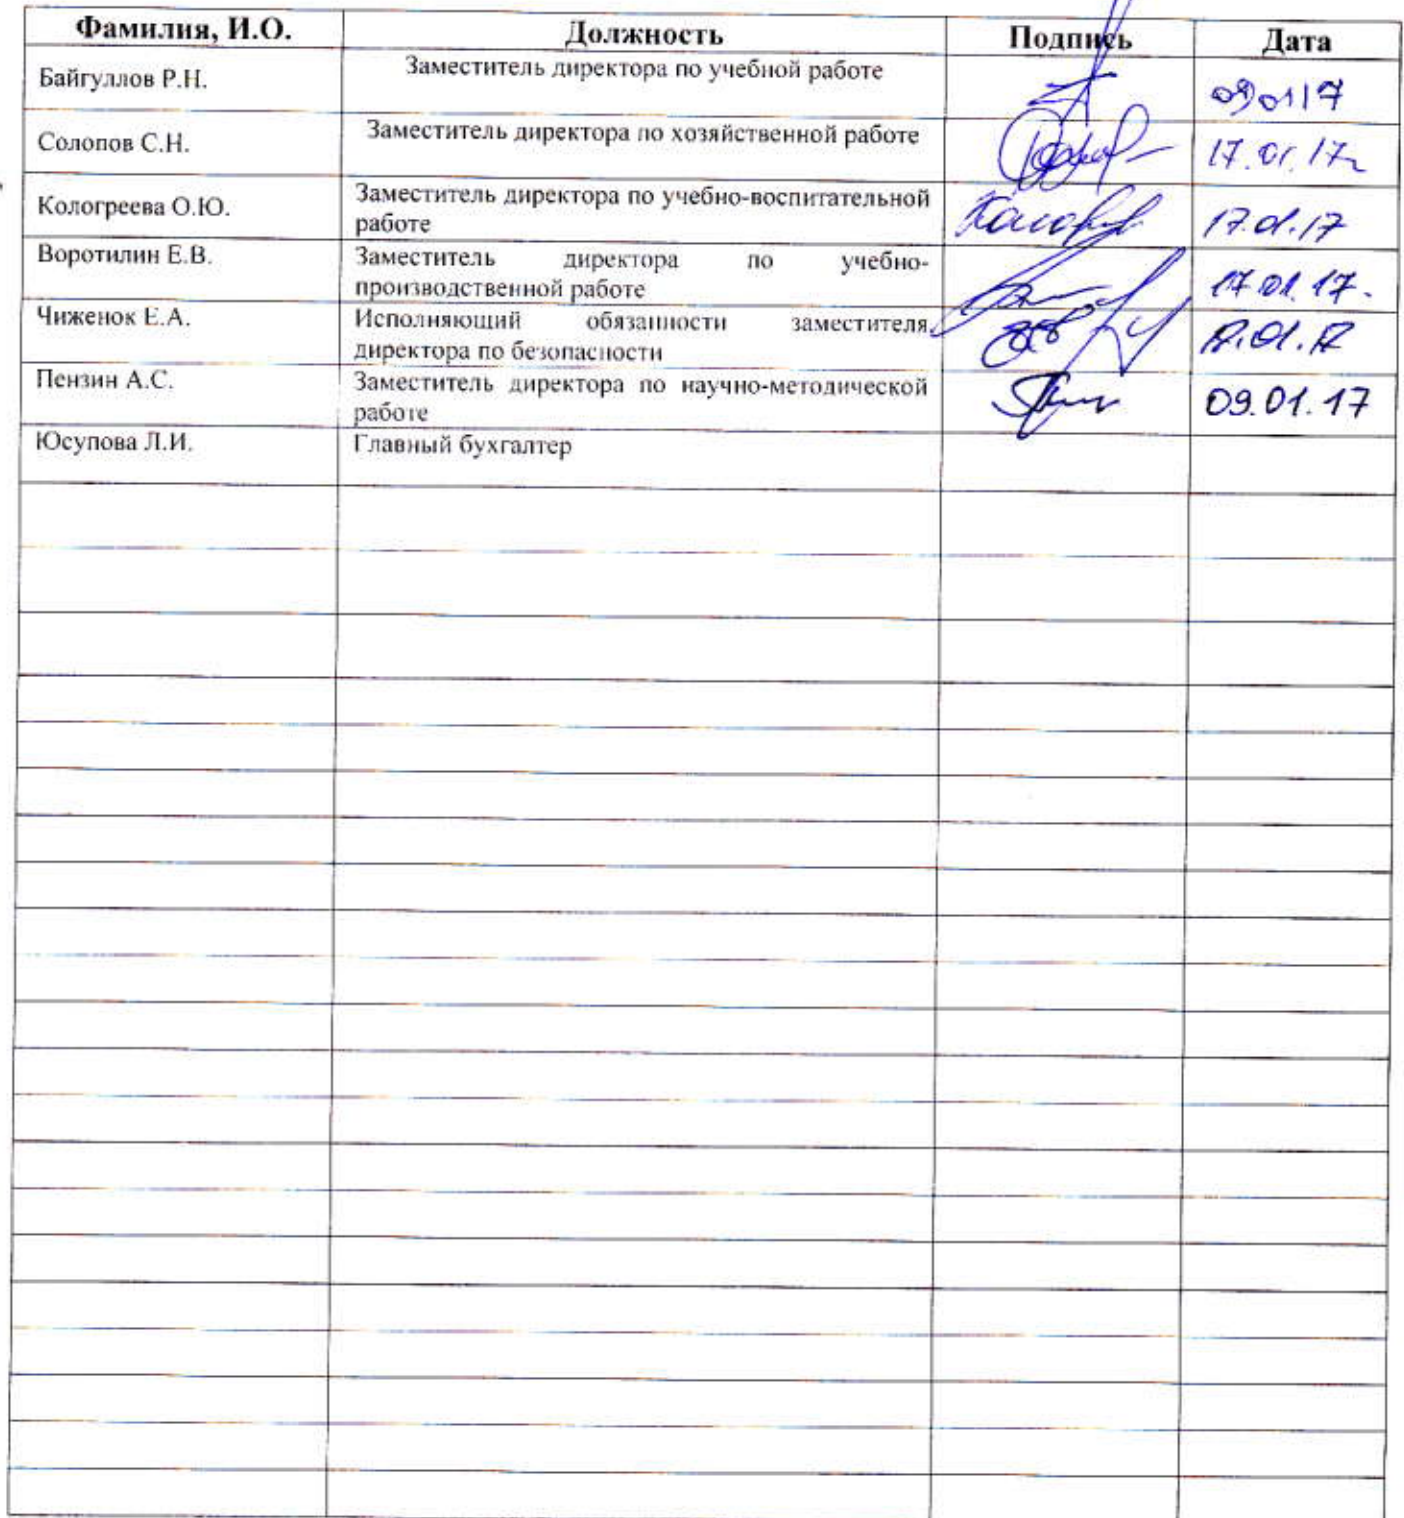 Фамилия, И.О. Должность Подпись Дата
Байгуллов Р.Н. Заместитель директора по учебной работе 09.01.17
Солопов С.Н. Заместитель директора по хозяйственной работе 17.01.17г
Кологреева О.Ю. Заместитель директора по учебно-воспитательной
работе 17.01.17
Воротилин Е.В. Заместитель директора по учебно-
производственной работе 17.01.17.
Чиженок Е.А. Исполняющий обязанности заместителя
директора по безопасности 17.01.17
Пензин А.С. Заместитель директора по научно-методической
работе 09.01.17
Юсупова Л.И. Главный бухгалтер